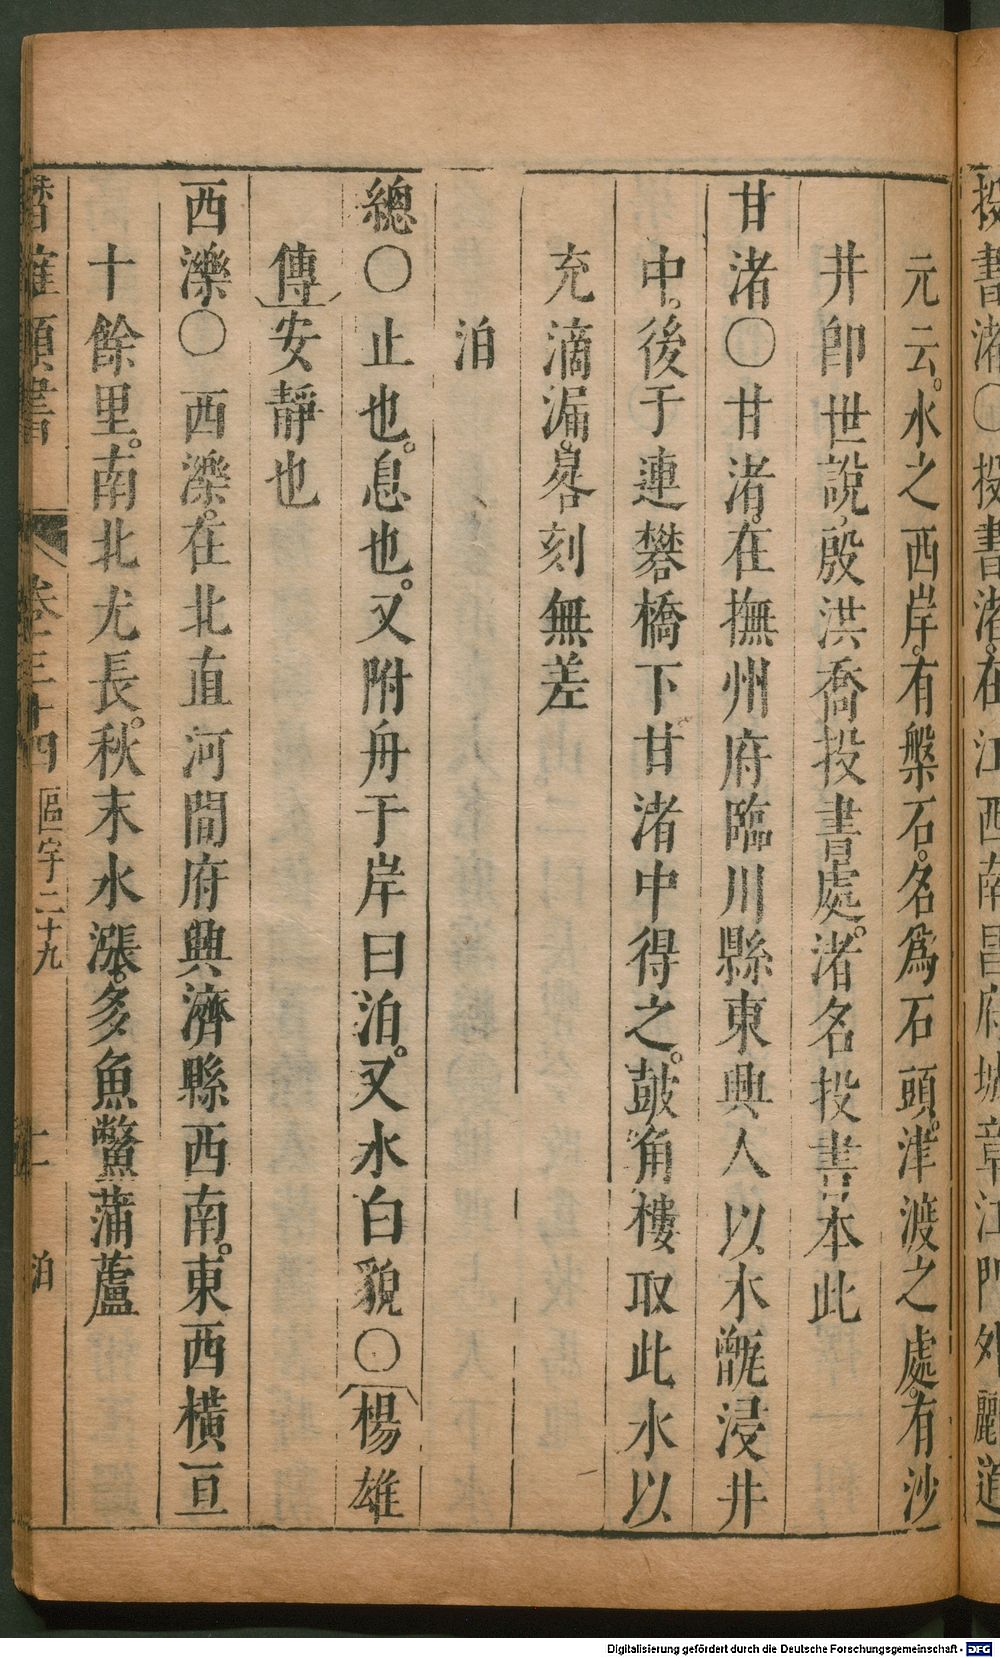 投書渚〇投書渚。在江西南昌府城章江門外酈道
元云。水之西岸。有槃石。名爲石頭。津渡之處。有沙
井卽世說，殷洪喬投書處。渚名投書本此
甘渚〇甘渚。在撫州府臨川縣東興人以木甑浸井
中。後于連礬橋下甘渚中得之。鼓角樓取此水以
充滴漏。晷刻無差
泊
總〇止也。息也。又附舟于岸曰泊。又水白貌〇楊雄
傳安靜也
西濼〇西濼。在北直河間府興濟縣西南。東西橫亘
十餘里。南北尤長。秋末水漲。多魚鱉蒲蘆
類書 卷三十四 區字二十九 二 泊
Digitalisierung gefördert durch die Deutsche Forschungsgemeinschaft - DFG